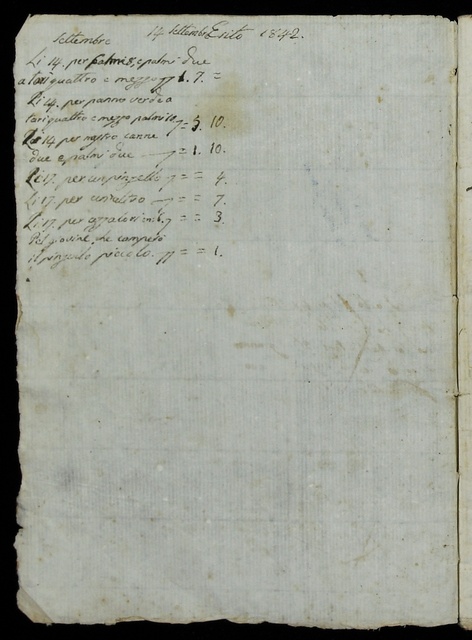 settembre 14 settembre Esito 1842.
Li 14. per palmi 8, e palmi due
a tarì quattro e mezzo = 1. 7. =
Li 14. per panno verde a
tarì quattro e mezzo palmi 10 = 3. 10.
Li 14 per nastro canne
due e palmi due — = 1. 10.
Li 17. per un pinzello = = 4.
Li 17. per un altro — = = 7.
Li 17. per = = 3.
Pel giovine, che comperò
il pinzello piccolo. = = 1.